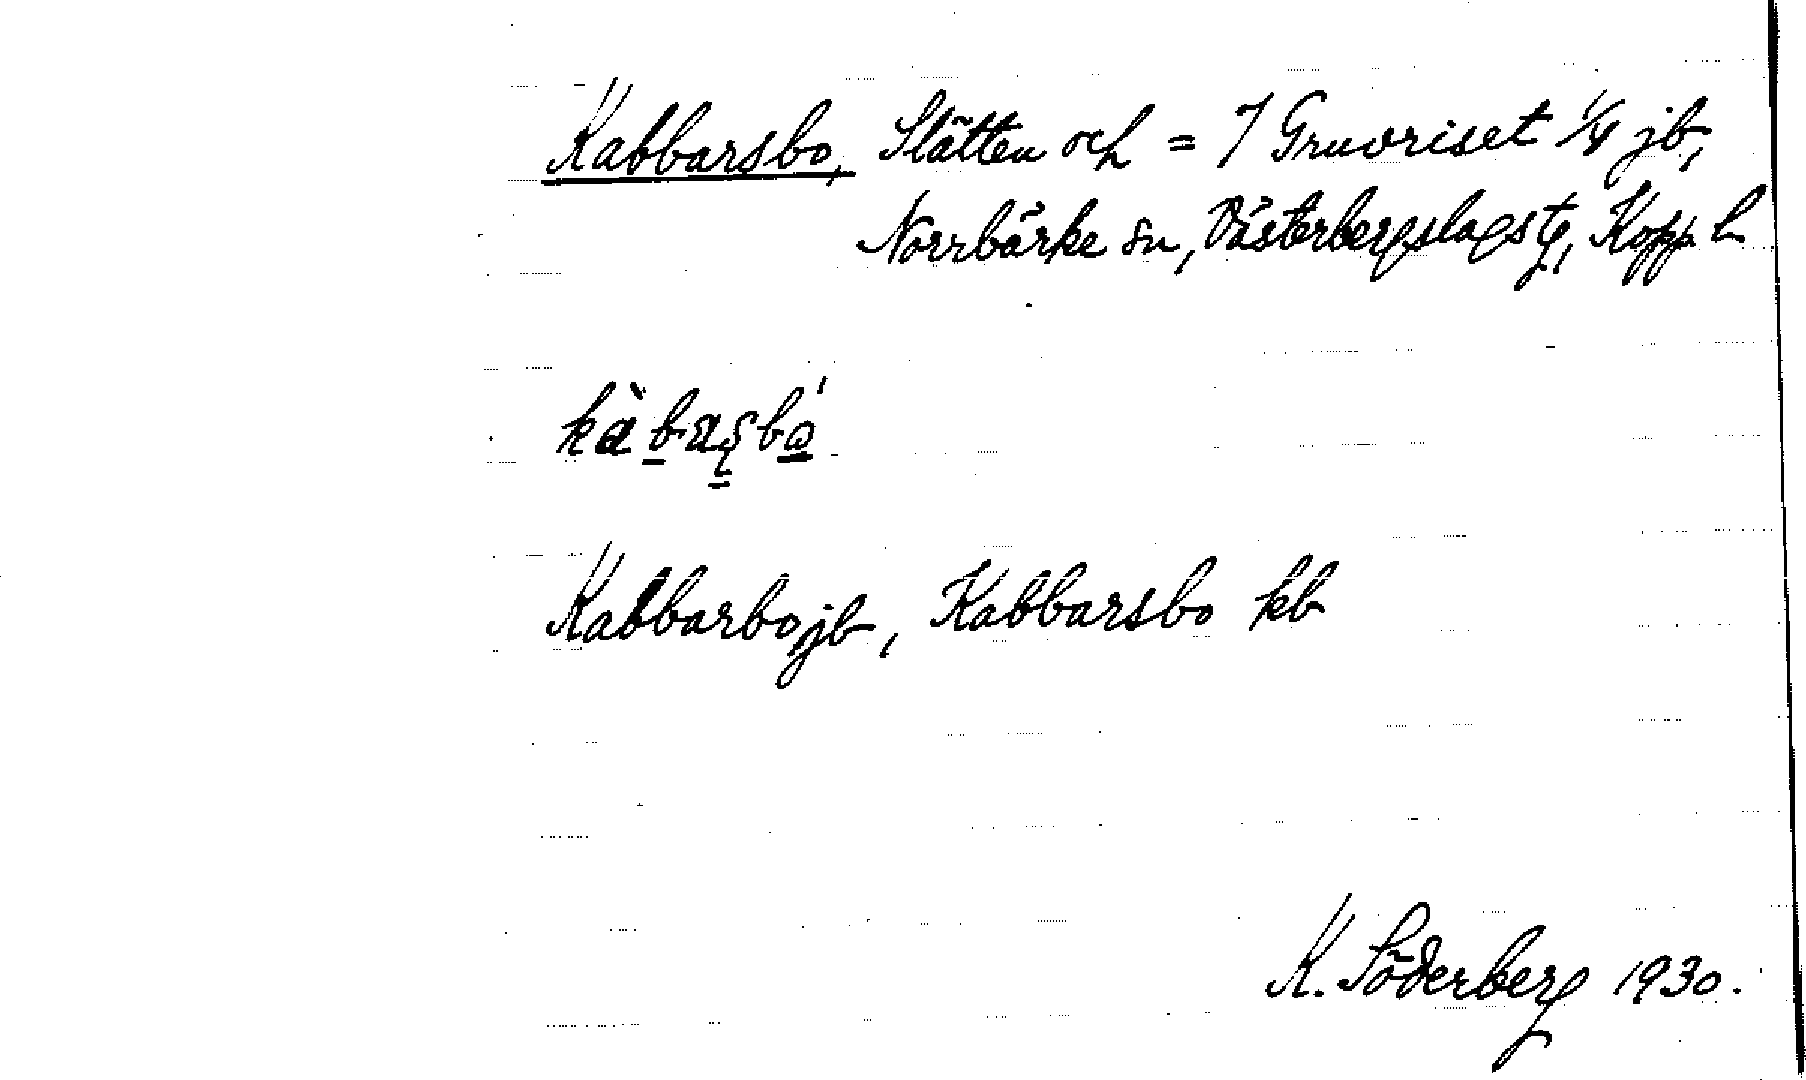 Kabbarsbo, Slätten och = 7 Gruvriset 1/4 jb,
Norrbärke sn, Västerbergslags tg, Kopp l
kàbaʂbó
Kabbarbo jb, Kabbarsbo kb
K. Söderberg 1930.